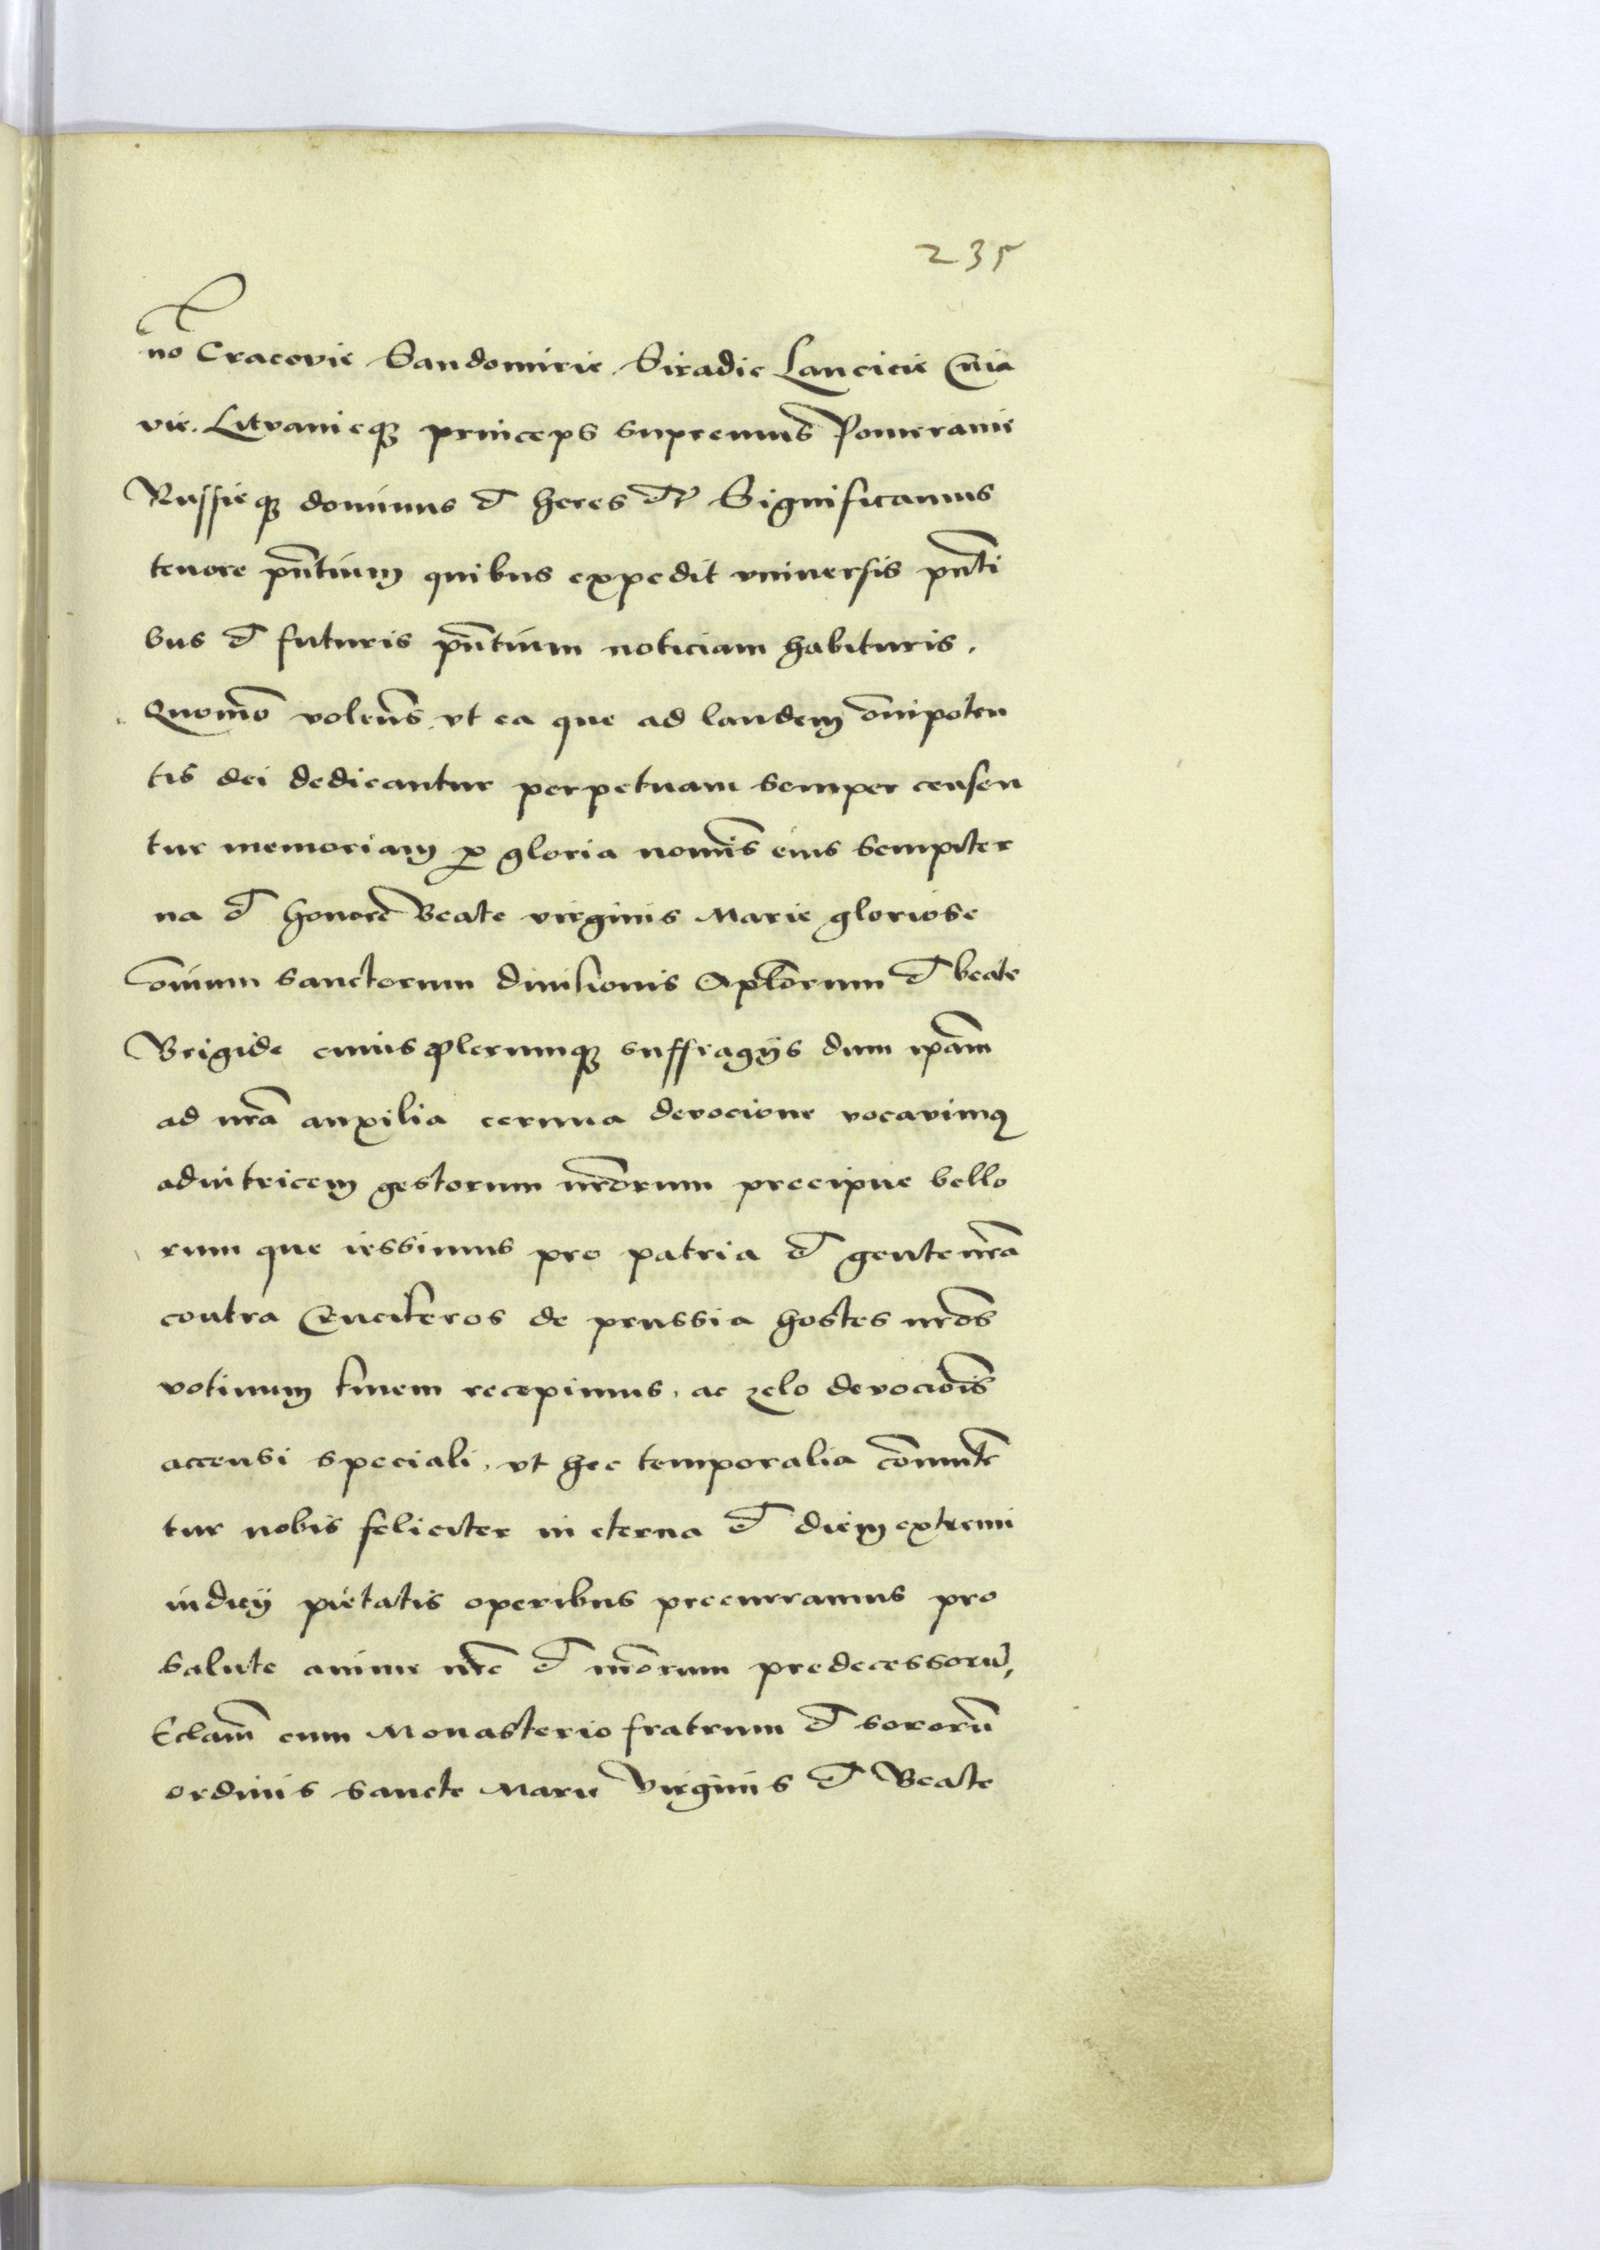 235
no Cracovie Sandomirie Siradie Lancicie Cuia
vie. Litvanieq princeps supremus Pomeranie
Russieq dominus et heres etc Significamus
tenore pñtium quibus expedit vniversis pñti
bus et futuris pñtium noticiam habituris.
Quomõ volens vt ea que ad laudem õnipoten
tis dei dedicantur perpetuam semper censen
tur memoriam p gloria nomĩs eius sempiter
na et honorẽ Beate virginis Marie gloriose
õnium sanctorum divisionis Aplorum et beate
Brigide cuius plerumq suffragijs dum ipam̃
ad nrã auxilia cernua devocione vocavimus
adiutricem gestorum nrõrum precipue bello
rum que iessimus pro patria et gente nrã
contra Cruciferos de prussia hostes nrõs
votiuum finem recepimus, ac zelo devociõis
accensi speciali, vt hec temporalia cõmute
tur nobis feliciter in eterna et diem extremi
iudicij pietatis operibus precurramus pro
salute anime nrẽ et nrõrum predecessorũ,
Eclam̃ cum Monasterio fratrum et sororũ
ordinis sancte Marie Virginis et Beate